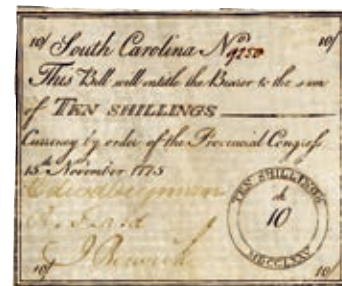 10/ South Carolina No. 9250 10/
This Bill will entitle the Bearer to the sum
of TEN SHILLINGS
Currency by order of the Provincial Congress
15th November 1775
TEN SHILLINGS
10
MDCCLXXV
10/ 10/